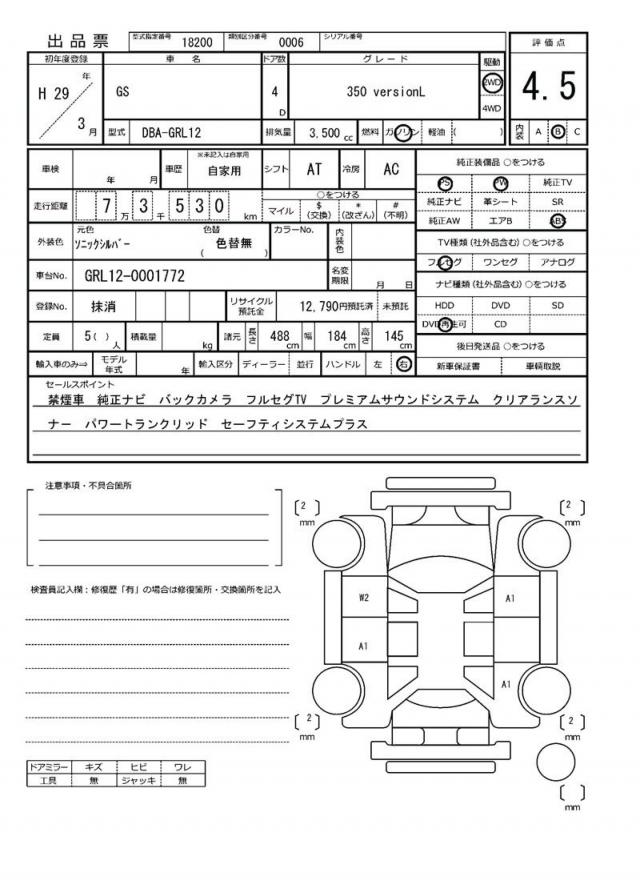 出品票 型式指定番号 18200 類別区分番号 0006 シリアル番号
初年度登録 車名 ドア数 グレード 駆動 評価点
H 29 年 GS 4 D 350 versionL 2WD 4.5
3 月 4WD
型式 DBA-GRL12 排気量 3,500 cc 燃料 ガソリン 軽油 ( ) 内装 A B C
車検 年 月 車歴 ※未記入は自家用 自家用 シフト AT 冷房 AC
走行距離 7 万 3 千 530 km ○をつける
マイル $ (交換) * (改ざん) # (不明)
外装色 元色 ソニックシルバー 色替 ( 色替無 ) カラーNo. 内装色
車台No. GRL12-0001772 名変期限 月 日
登録No. 抹消 リサイクル預託金 12,790円預託済 未預託
定員 5( ) 人 積載量 kg 諸元 長さ 488 cm 幅 184 cm 高さ 145 cm
輸入車のみ⇒ モデル年式 年 輸入区分 ディーラー 並行 ハンドル 左 右
純正装備品 ○をつける
PS PW 純正TV
純正ナビ 革シート SR
純正AW エアB ABS
TV種類(社外品含む) ○をつける
フルセグ ワンセグ アナログ
ナビ種類(社外品含む) ○をつける
HDD DVD SD
DVD再生可 CD
後日発送品 ○をつける
新車保証書 車輌取説
セールスポイント
禁煙車 純正ナビ バックカメラ フルセグTV プレミアムサウンドシステム クリアランスソ
ナー パワートランクリッド セーフティシステムプラス
注意事項・不具合箇所
検査員記入欄:修復歴「有」の場合は修復箇所・交換箇所を記入
[ 2 ] mm
[ 2 ] mm
W2
A1
A1
A1
[ 2 ] mm
[ 2 ] mm
[ ] mm
ドアミラー キズ ヒビ ワレ
工具 無 ジャッキ 無